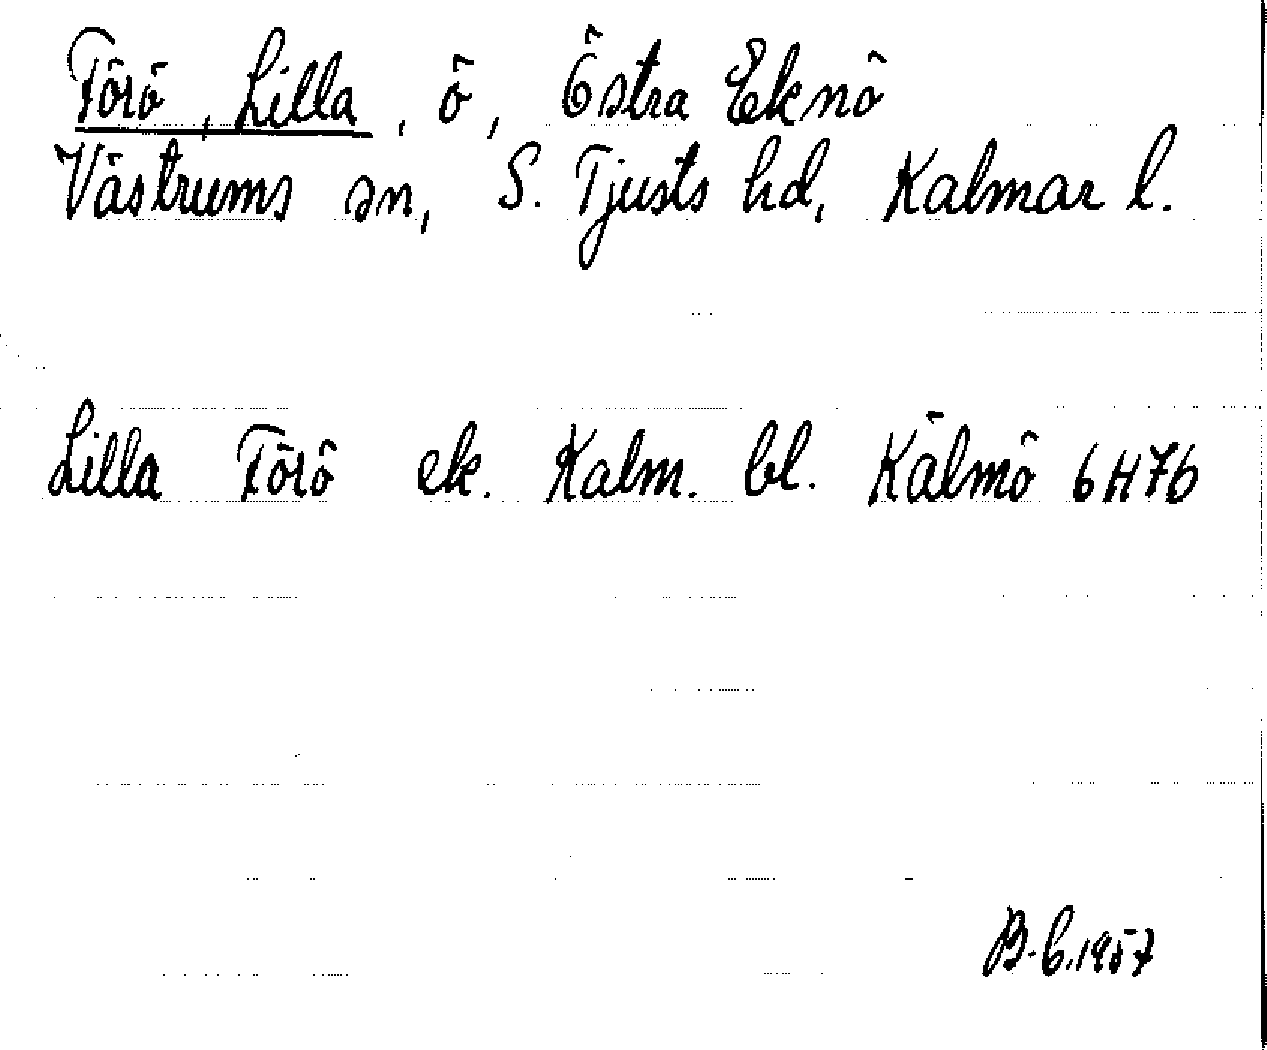 Törö, Lilla, ö, Östra Eknö
Västrums sn, S. Tjusts hd, Kalmar l.
Lilla Törö ek. Kalm. bl. Kålmö 6H7b
B-b.1957